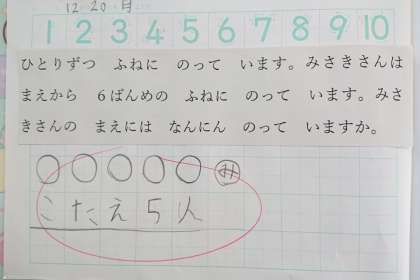 12 20 月
1 2 3 4 5 6 7 8 9 10
ひとりずつ ふねに のって います。みさきさんは
まえから 6ばんめの ふねに のって います。みさ
きさんの まえには なんにん のって いますか。
み
こたえ 5人